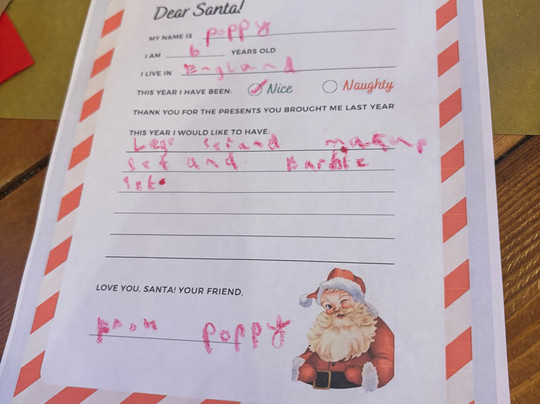 Dear Santa!
MY NAME IS poppy
I AM 6 YEARS OLD
I LIVE IN England
THIS YEAR I HAVE BEEN: Nice Naughty
THANK YOU FOR THE PRESENTS YOU BROUGHT ME LAST YEAR
THIS YEAR I WOULD LIKE TO HAVE:
Lego set and makup
set and Barbie
set
LOVE YOU, SANTA! YOUR FRIEND,
from poppy